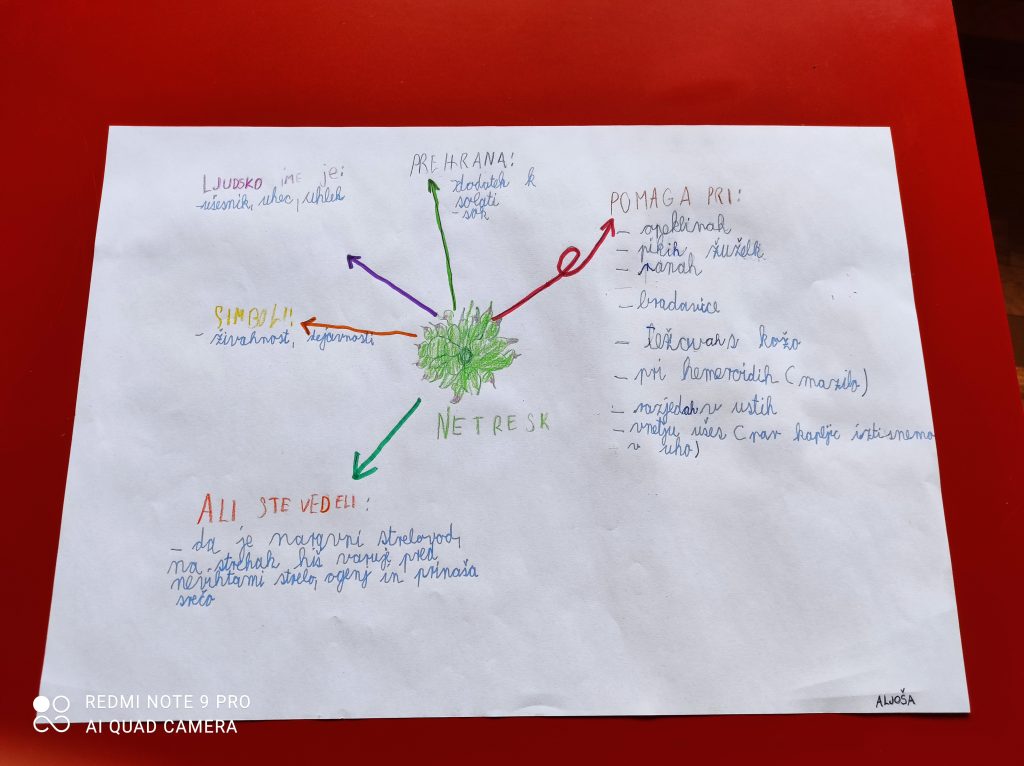 LJUDSKO IME je:
- ušesnik, uhec, uhlek
PREHRANA:
dodatek k
solati
- sok
POMAGA PRI:
- opeklinah
- pikih žuželk
- ranah
- bradavice
- težavah s kožo
- pri hemeroidih (mazilo)
- razjedah v ustih
- vnetju ušes (par kapljic iztisnemo
v uho)
SIMBOLI:
- živahnost,
NETRESK
ALI STE VEDELI:
- da je naravni strelovod,
na strehah hiš varuje pred
nevihtami strelo, ogenj in prinaša
srečo
ALJOŠA
REDMI NOTE 9 PRO
AI QUAD CAMERA